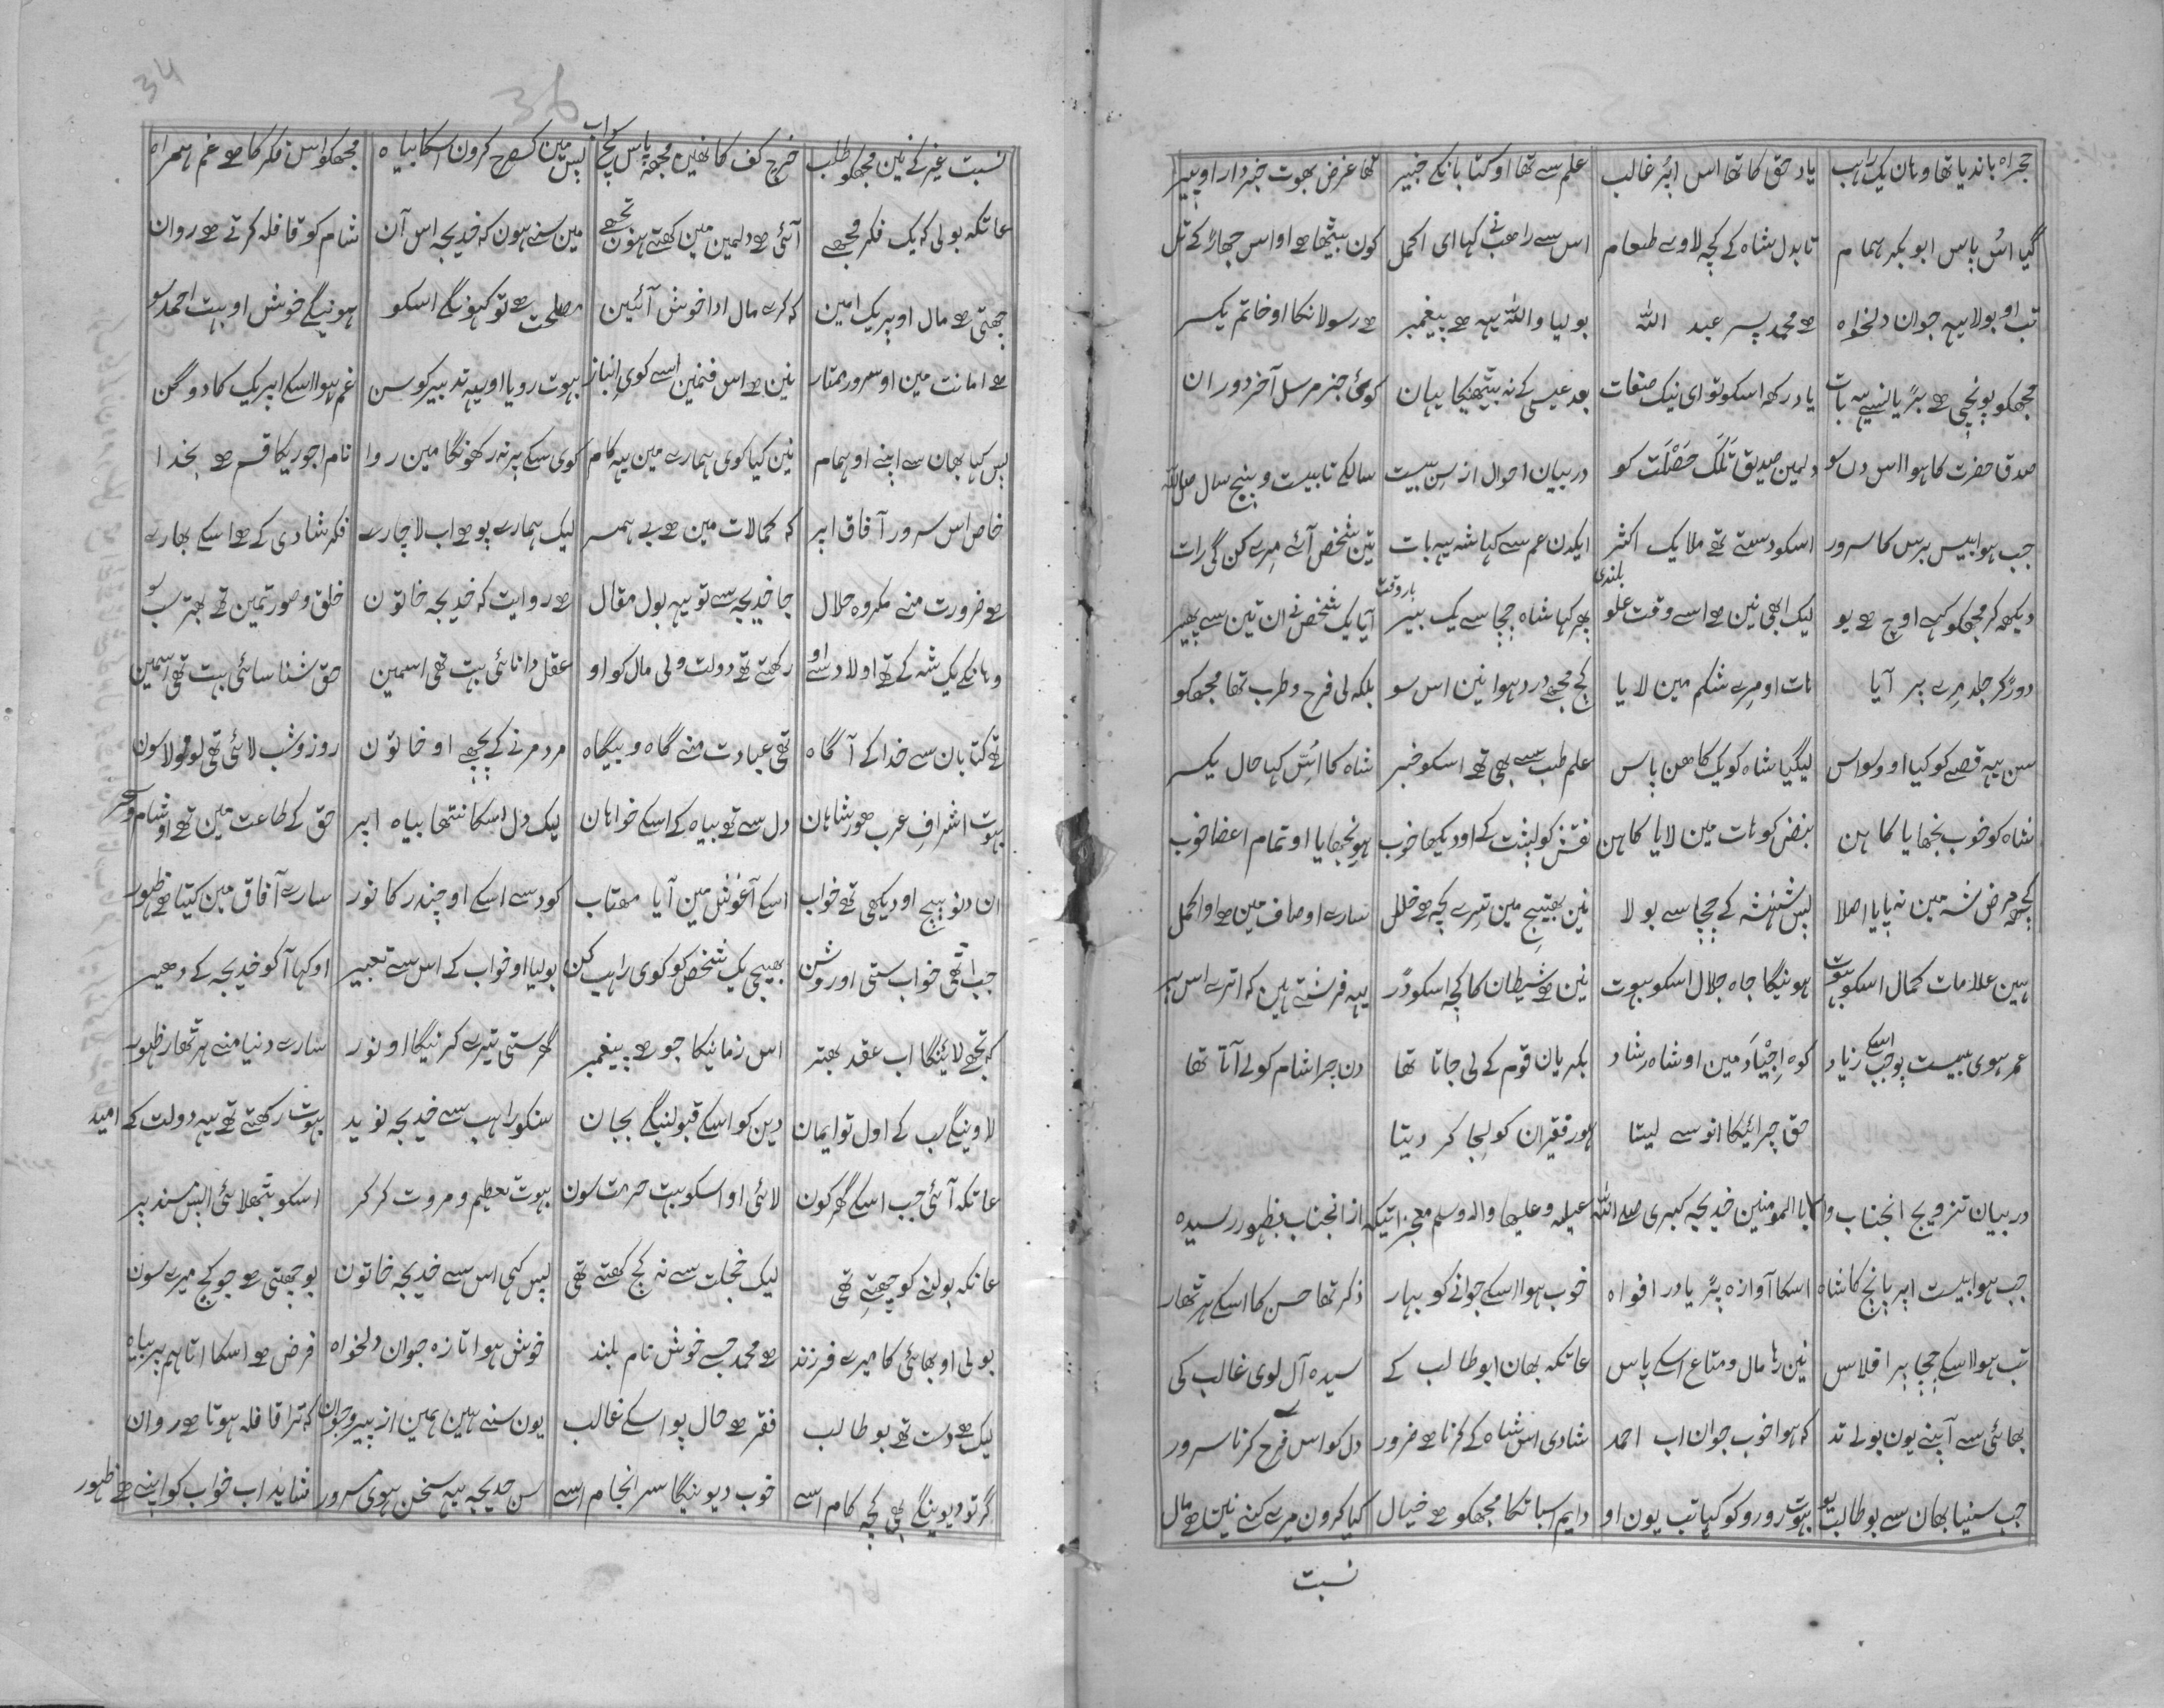 حجراہ باندیا تھا وہان یک راہب یاد حق کا تھا اس اپُر غالب علم سے تھا او کتابانکے خبیر تھا غرض بھوت خبردار او پیر
گیا اسُ پاس ابو بکر ہمام تا بدل شاہ کے کچہ لاوے طعام اس سے راھب نے کہا ای اکمل کون بیٹھا ہے او اس جھاڑ کے تل
تب او بولا یہہ جوان دلخواہ ہے محمد پسر عبد اللہ بولیا واللہ یہہ ہے پیغمبر ہے رسولانکا او خاتم یکسر
مجھکو پونچی ہے بڑیانسے یہ بات یاد رکھہ اسکو تو ای نیک صفات بعد عیسی کے نہ بیٹھیگا یہان کوئی جز مرسل آخر دوران
صدق حضرت کا ہوا اس دں سو دلمین صدیق تَلَک خصلت کو دربیان احوال از سِن بیست سالکے تا بیست و پنج سال
جب ہوا بیس برس کا سرور اسکو دستے تھے ملایک اکثر ایکدن عم سے کہا شہ یہہ بات تین شخص آئے مِرے کن گی رات
دیکھہ کر مجھکو کہے اوچ ہے یو لیک ابھی نین ہے اسے وقت علو بلندی پھر کہا شاہ چچا سے یک بیر آیا یک شخص نے ان تین سے پھیر
دوڑ کر جلد مِرے بر آیا ہات او مِرے شکم مین لایا کچ مجھے درد ہوا نین اس سو بلکہ لی فرح و طرب تھا مجھکو
سن یہہ قصے کو کیا او ولواس لیگیا شاہ کو یک کاھن پاس علم طب سے بھی تھے اسکو خبر شاہ کا اسُ کہا حال یکسر
شاہ کو خوب بنجھایا کاہن نبض کو ہات مین لایا کاہن نقش کو لپشت کے او دیکھا خوب ہو بنجھایا او تمام اعضا خوب
کچھہ مرض شہ مین نہ پایا اصلا پس شہنشہ کے چچا سے بولا نین بھتیج مین تیرے کچہ ہے خلل سارے اوصاف مین ہے او اکمل
ہین علامات کمال اسکو بہوت ہوئیگا جاہ جلال اسکو بہوت نین ہے شیطان کا کچہ اسکو ڈر یہہ فرشتے ہین کہ اترے اس پر
عمر ہوی بیست پو جب اسکے زیاد کوہ اجْیاَد مین او شاہ رشاد بکریان قوم کے لی جاتا تھا دن چرا شام کو لے آتا تھا
حق چرائیکا انو سے لیتا ہور فقیران کو لیجا کر دیتا
دربیان تزویج انجناب والا با ام المومنین خدیجہ کبری صلے اللہ علیہ وعلیھا والہ وسلم معجزاتیکہ از انجناب بظہور رسیدہ
جب ہوا بیست اپر پانچ کا شاہ اسکا آوازہ پڑیا در افواہ خوب ہوا اسکے جوانے کو بہار ذکر تھا حسن کا اسکے ہر ٹھار
تب ہولا اسکے چچا پر افلاس نین رہا مال و متاع اسکے پاس عاتکہ بھان ابو طالب کے سیدہ آل لوی غالب کی
بھائی سے اَپنے یون بولے تد کہ ہوا خوب جوان اب احمد شادی اس شاہ کے کرنا ہے ضرور دل کو اس فرح کرنا سرور
جب سنیا بھان سے بو طالب یو بہوت رو رو کو کہا تب یون او دایم اسباتکا مجھکو ہے خیال کیا کرون میرے کنے نین ہے مال
نسبت
36
34
نسبت غیر کے نین مجھکو طلب خرچ کف کا نھین مجھہ پاس کچ اب پس مین کسطرح کرون اسکا بیاہ مجھکو اس فکر کا ہے غم ہمراہ
عاتکہ بولی کہ یک فکر مجھے آئی ہے دلمین مین کھتے ہون تجھے مین سنے ہون کہ خدیجہ اس آن شام کو قافلہ کرتے ہے روان
چھتی ہے مال اوپر یک امین کہ کرے مال ادا خوش آئین مصلحت ہے تو کہونگے اسکو ہوئیگے خوش او بہت احمد سو
ہے امانت مین او سرور ممتاز نین ہے اس فنمین اسے کوی انباز بہوت رویا او یہہ تدبیر کو سن غم ہوا اسکے اپر یک کا دوگن
پس کہا بھان سے اپنے او ہمام نین کیا کوی ہمارے مین یہہ کام کوی سکے پر نہ رکھونگا مین روا نام اجوریکا قسم ہے بخدا
خاص اس سرور آفاق اپر کہ کمالات مین ہے بے ہمسر لیک ہمارے پو ہے اب لاچارے فکر شادی کے ہے اسکے بھارے
ہے ضرورت منے مکروہ حلال جا خدیجہ سے تو یہہ بول مقال ہے روایت کہ خدیجہ خاتون خلق و صورتمین تھے بھتر سب سو
وہانکے یک شہ کے تھے اولاد سے او رکھتے تھے دولت و لی مال کو او عقل دانائی بہت تھی اسمین حق شناسائی بہت تھی اسمین
تھے کتابان سے خدا کے آگاہ تھی عبادت منے گاہ و بیگاہ مرد مرنے کے پچھے او خاتون روز و شب لائی تھی لو مولا سون
بہوت اشراف عرب ھور شاہان دل سے تھے بیاہ کے اسکے خواہان لیک دل اسکا ننتھا بیاہ اپر حق کے طاعت مین تھے او شام و سحر
ان دنو بیچ او دیکھی تھے خواب اسکے آغوش مین آیا مھتاب کود سے اسکے او چندر کا نور سارے آفاق مین کیتا ہے ظہور
جب اٹھی خواب ستی او روشن بھیجی یک شخص کو کوی راہب کن بولیا او خواب کے اس سے تعبیر او کہا آ کو خدیجہ کے دھیر
کہ تجھے لائیگا اب عقد بھتر اس زمانیکا جو ہے پیغمبر گھر ستی تیرے کر نیگا او نور سارے دنیا منے ہر ٹھار ظہور
لاوینگے سب کے اول تو ایمان دین کو اسکے قبولینگے بجان سنکو راہب سے خدیجہ نوید بہوت رکھتے تھے یہہ دولت کے امید
عاتکہ آئی جب اسکے گھر کون لائی او اسکو بہت حرمت سون بہوت تعظیم و مروت کر کر اسکو بٹھلائی اپس مسند پر
عاتکہ بولنے کو چھتے تھی لیک خجلت سے نہ کچ کھتے تھی پس کہی اس سے خدیجہ خاتون بوجھتی ہے جو کچ میرے سون
بولی او بھائی کا میرے فرزند ہے محمد جسے خوش نام بلند خوش ہوا تازہ جوان دلخواہ فرض ہے اسکا اتا ہم پر بیاہ
لیک ہے دست تھے بو طالب فقر ہے حال پو اسکے غالب یون سنے ہین ہمین از پیر و جوان کہ ترا قافلہ ہوتا ہے روان
گر تو دیوینگے بھی کچہ کام اسے خوب دیوئیگا سر انجام اسے سن خدیجہ یہہ سخن ہوی مسرور شاید اب خواب کو اپنے ہے ظہور